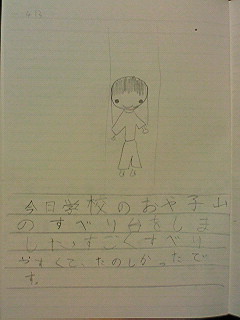 今日学校のおや子山
のすべり台をしま
した。すごくすべり
やすくて、たのしかったで
す。